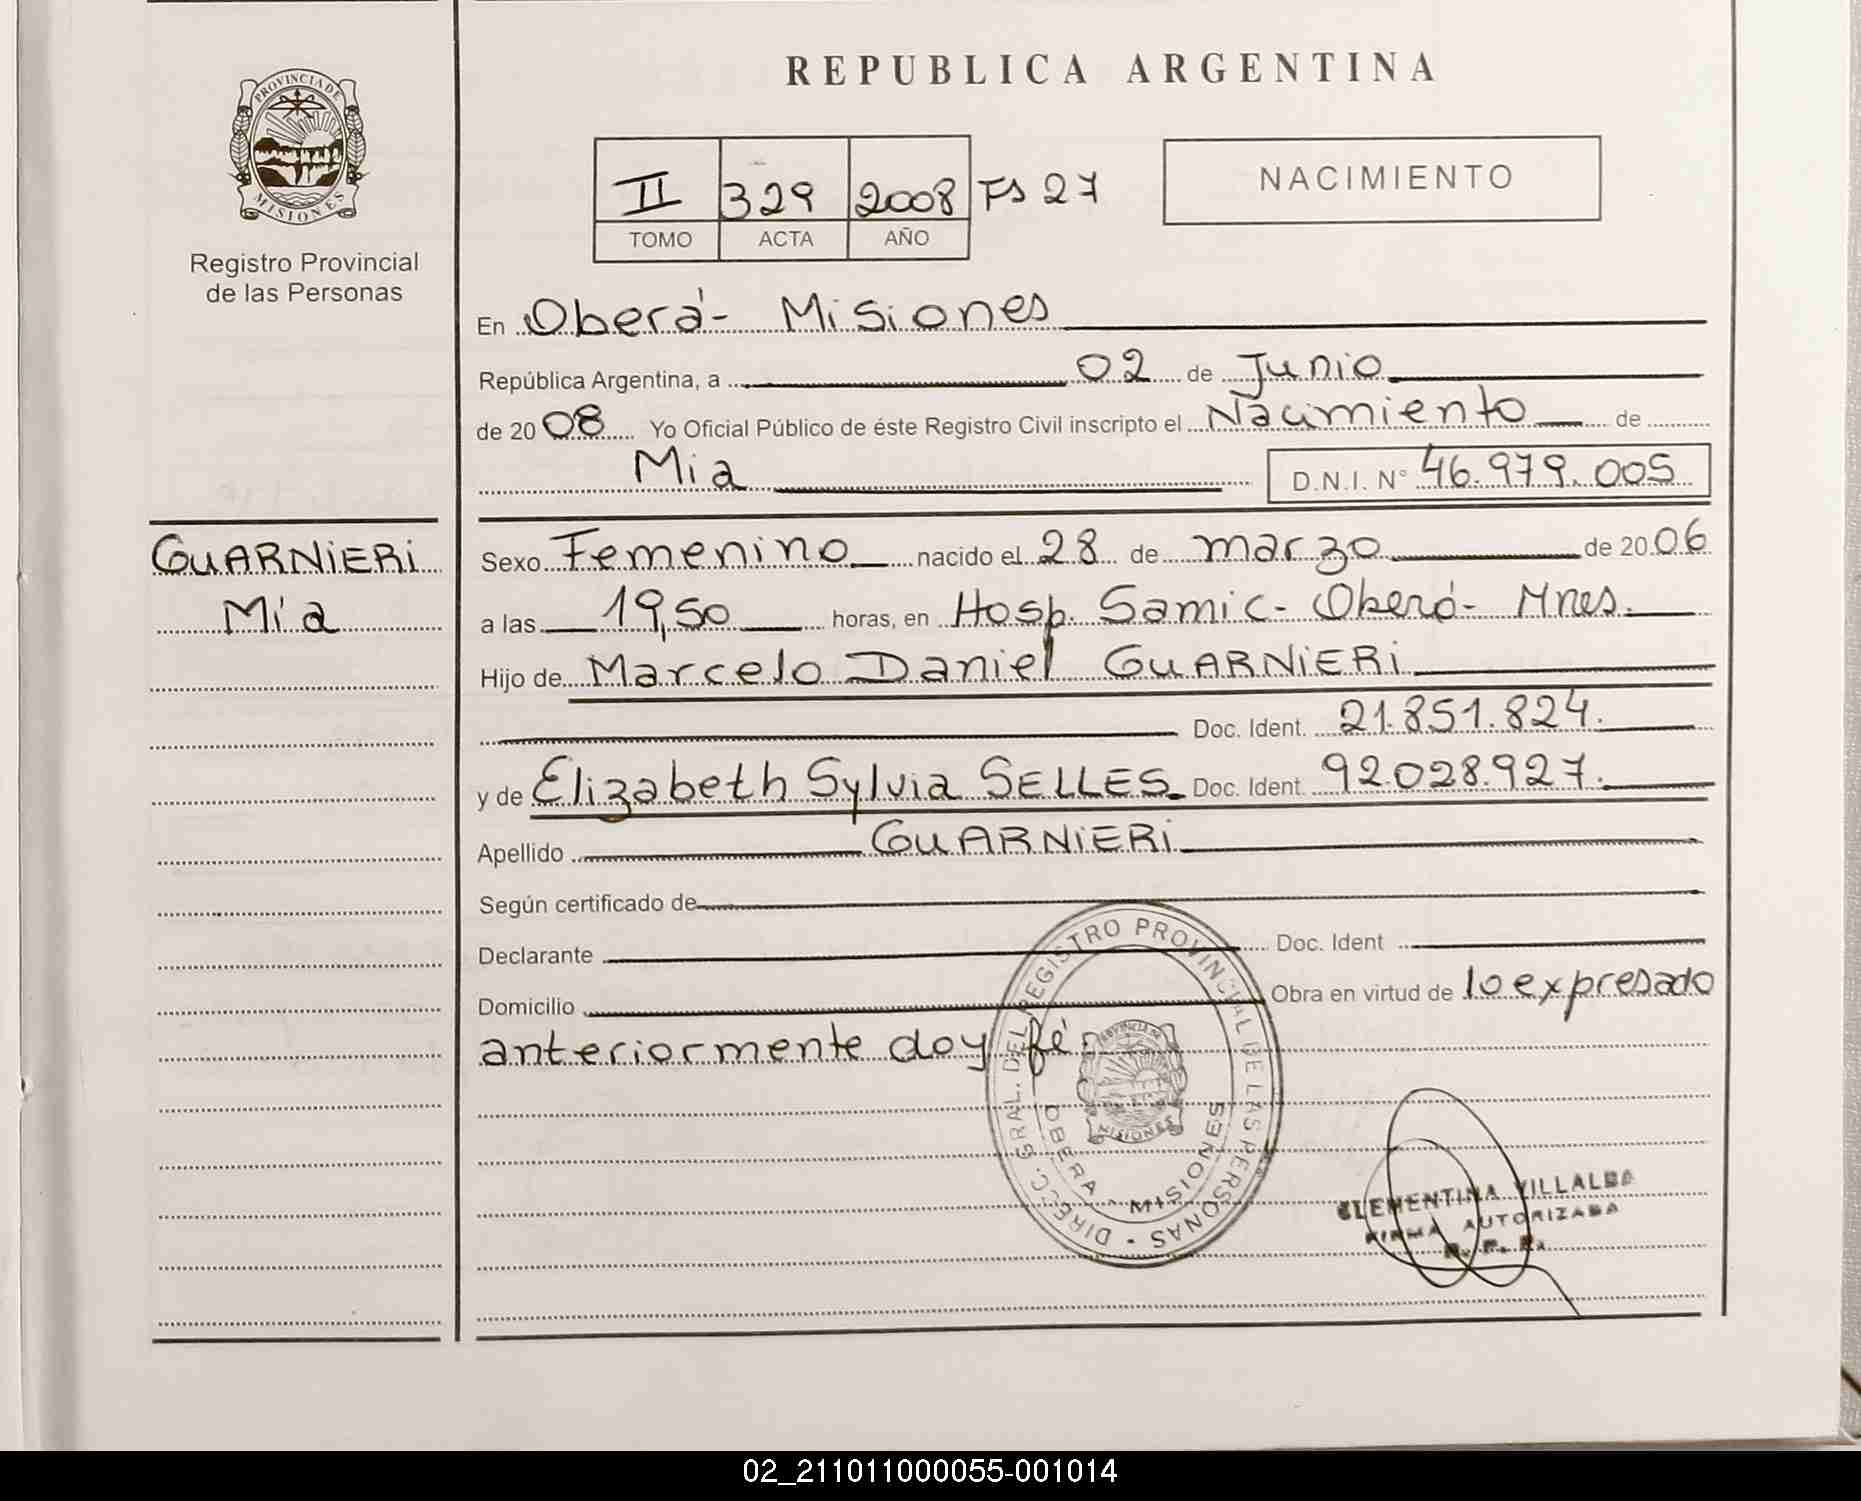 REPUBLICA ARGENTINA
PROVINCIA DE
MISIONES
Registro Provincial
de las Personas
II 329 2008 Fs 27
TOMO ACTA AÑO
NACIMIENTO
En Oberá- Misiones
República Argentina, a 02 de Junio
de 2008 Yo Oficial Público de éste Registro Civil inscripto el Nacimiento de
Mia D.N.I. N° 46.979.005
GUARNIERI
Mía
Sexo Femenino nacido el 28 de marzo de 2006
a las 19,50 horas, en Hosp. Samic- Oberá- Mnes.
Hijo de Marcelo Daniel GUARNIERI
Doc. Ident. 21.851.824.
y de Elizabeth Sylvia SELLES Doc. Ident. 92.028.927.
Apellido GUARNIERI
Según certificado de
Declarante Doc. Ident
Domicilio Obra en virtud de lo expresado
anteriormente doy fé.
DIRECC. GRAL. DEL REGISTRO PROVINCIAL DE LAS PERSONAS
OBERA - MISIONES
MISIONES
CLEMENTINA VILLALBA
FIRMA AUTORIZADA
02_211011000055-001014